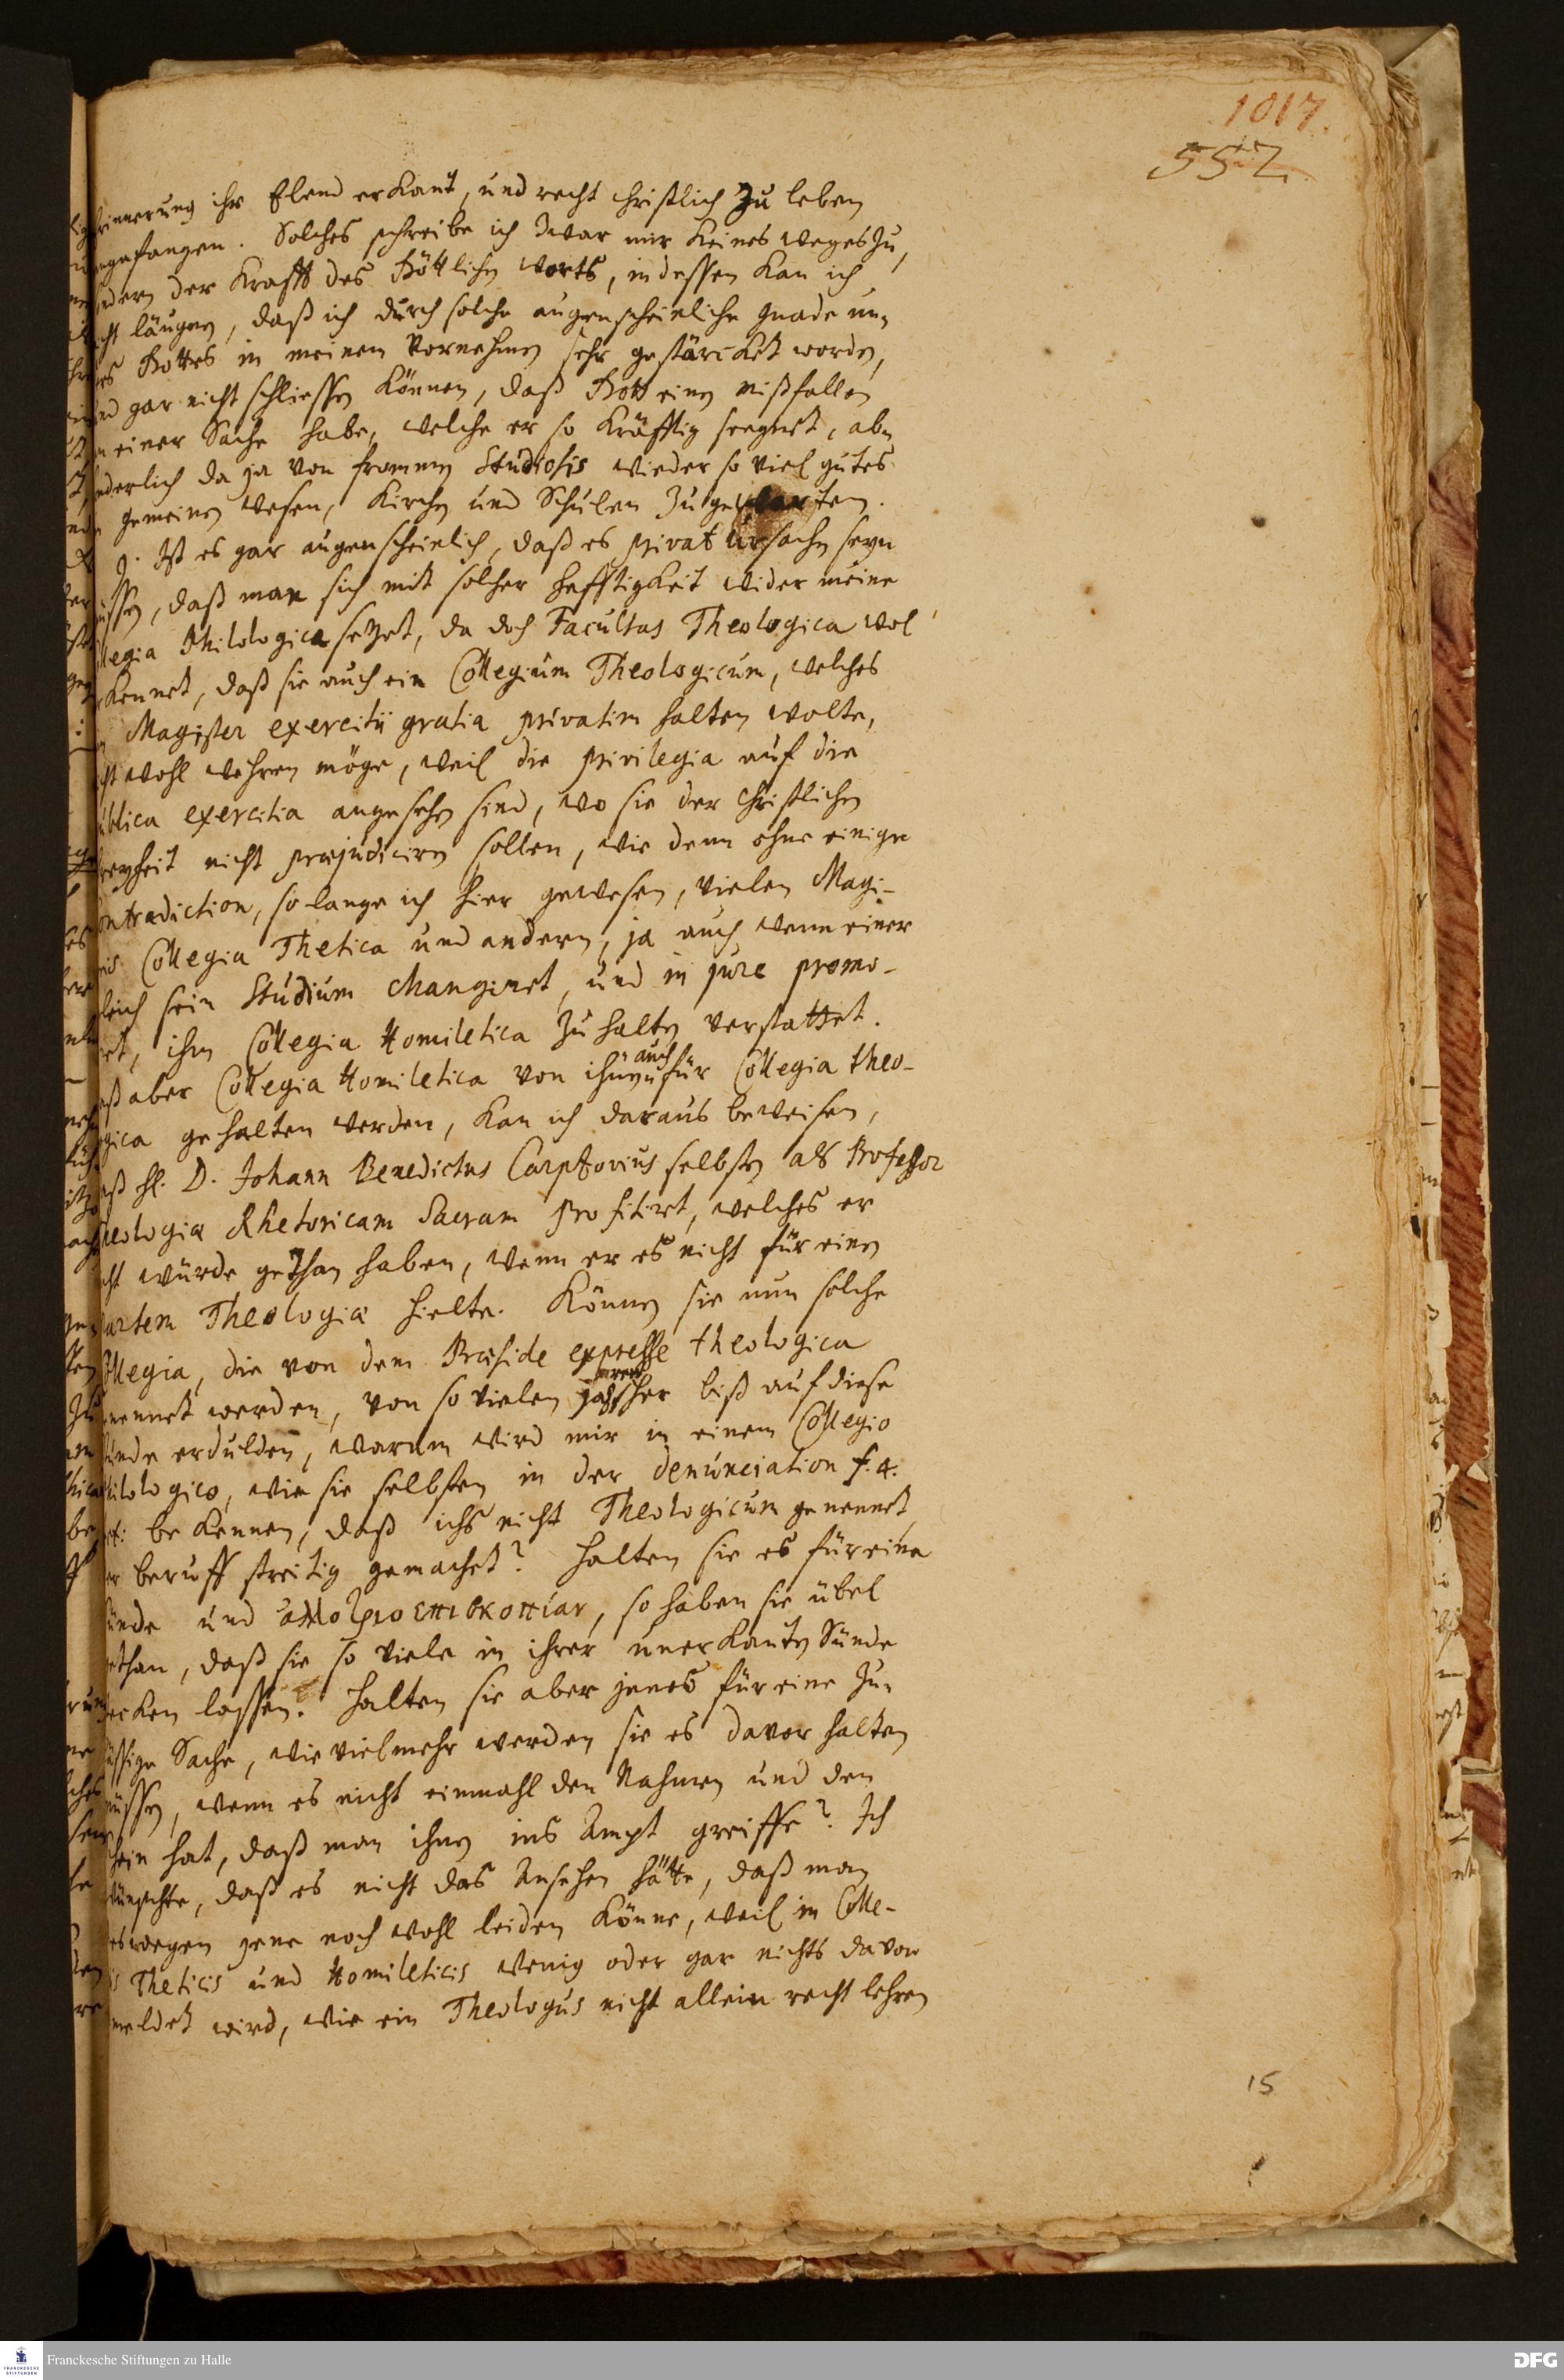 1017.
552.
rinnerung ihr Elend erkant, und recht christlich zu leben
angefangen. Solches schreibe ich zwar mir keines weges zu,
ndern der Krafft des Göttlichen Worts, indessen kan ich
icht läugnen, daß ich durch solche augenscheinliche Gnade un-
res Gottes in meinem Vornehmen sehr gestärcket worden,
nd gar nicht schliessen können, daß Gott einen Mißfallen
n einer Sache habe, welche er so kräfftig segnet, abs
nderlich da ja von frommen Studiosis wieder so viel gutes
n gemeinen Wesen, Kirchen und Schulen zu gewarten.
9. Ist es gar augenscheinlich, daß es privat Ursachen seyn
üssen, daß man sich mit solcher Hefftigkeit wider meine
llegia Philologica setzet, da doch Facultas Theologica wol
rkennet, daß sie auch ein Collegium Theologicum, welches
n Magister exercitii gratia privatim halten wolte,
cht wohl wehren möge, weil die privilegia auf die
ublica exercitia angesehen sind, wo sie der Christlichen
reyheit nicht præjudiciren sollen, wie denn ohne einige
ontradiction, so lange ich hier gewesen, vielen Magi-
ris Collegia Thetica und andern, ja auch wenn einer
leich sein Studium changiret, und in jure promo-
ret, ihm Collegia Homiletica zu halten verstattet.
aß aber Collegia Homiletica von ihnen auch für Collegia theo-
ogica gehalten werden, kan ich daraus beweisen,
aß H. D. Johann Benedictus Carpzovius selbsten als Professor
heologiæ Rhetoricam Sacram profitirt, welches er
cht würde gethan haben, wenn er es nicht für einen
artem Theologiæ hielte. Können sie nun solche
ollegia, die von dem Præside expresse theologica
nennet werden, von so vielen jahren her biß auf diese
tunde erdulden, warum wird mir in einem Collegio
hilologico, wie sie selbsten in der denunciation f. 4.
bekennen, daß ichs nicht Theologicum genennet,
er beruff streitig gemachet? Halten sie es für eine
ünde und ἀλλοτριοεπισκοπίαν, so haben sie übel
ethan, daß sie so viele in ihrer unerkanten Sünde
ecken lassen. Halten sie aber jenes für eine zu-
ässige Sache, wie vielmehr werden sie es davor halten
müssen, wenn es nicht einmahl den Nahmen und den
chein hat, daß man ihnen ins Ampt greiffe? Ich
wünschte, daß es nicht das Ansehen hätte, daß man
eswegen jene noch wohl leiden könne, weil in Colle-
is Theticis und Homileticis wenig oder gar nichts davon
meldet wird, wie ein Theologus nicht allein recht lehren
15
Franckesche Stiftungen zu Halle
FRANCKESCHE STIFTUNGEN
DFG